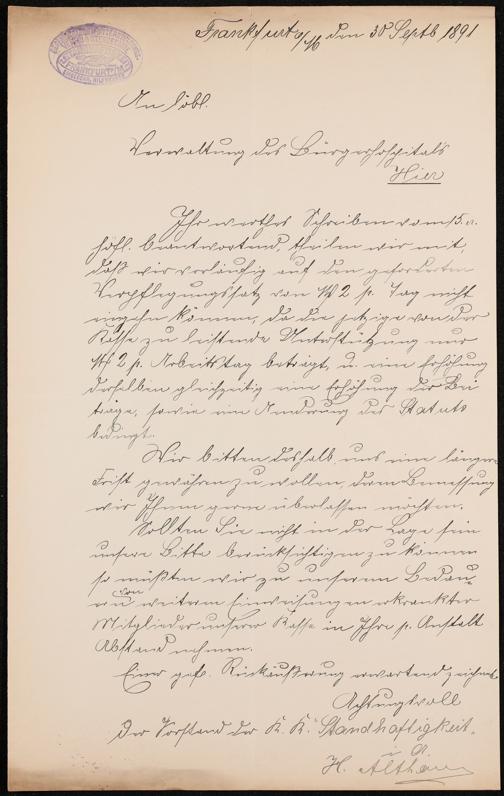 Frankfurt a/M den 30 Septb 1891
FRANKFURT a/M
An löbl.
Verwaltung des Bürgerhospitals
Hier
Ihr werthes Schreiben vom 15. cr.
höfl. beantwortend, theilen wir mit,
daß wir vorläufig auf den geforderten
Verpflegungssatz von M 2 p. Tag nicht
eingehn können, da die jetzige von der
Kasse zu leistende Unterstützung nur
M 2 p. Arbeitstag beträgt, u. eine Erhöhung
derselben gleichzeitig eine Erhöhung der Bei
träge, sowie ein Aenderung des Statuts
bedingt.
Wir bitten deshalb uns eine längere
Frist gewähren zu wollen, deren Bemessung
wir Ihnen gerne überlassen möchten.
Sollten Sie nicht in der Lage sein
unsere Bitte berücksichtigen zu können
so müßten wir zu unserem Bedau-
ern von weiteren Einweisungen erkrankter
Mitglieder unserer Kasse in Ihre p. Anstalt
Abstand nehmen.
Einer gef. Rückäußerung erwartend zeichnet
Achtungsvoll
Der Vorstand der K. K. "Standhaftigkeit"
i. A.
H. Altha